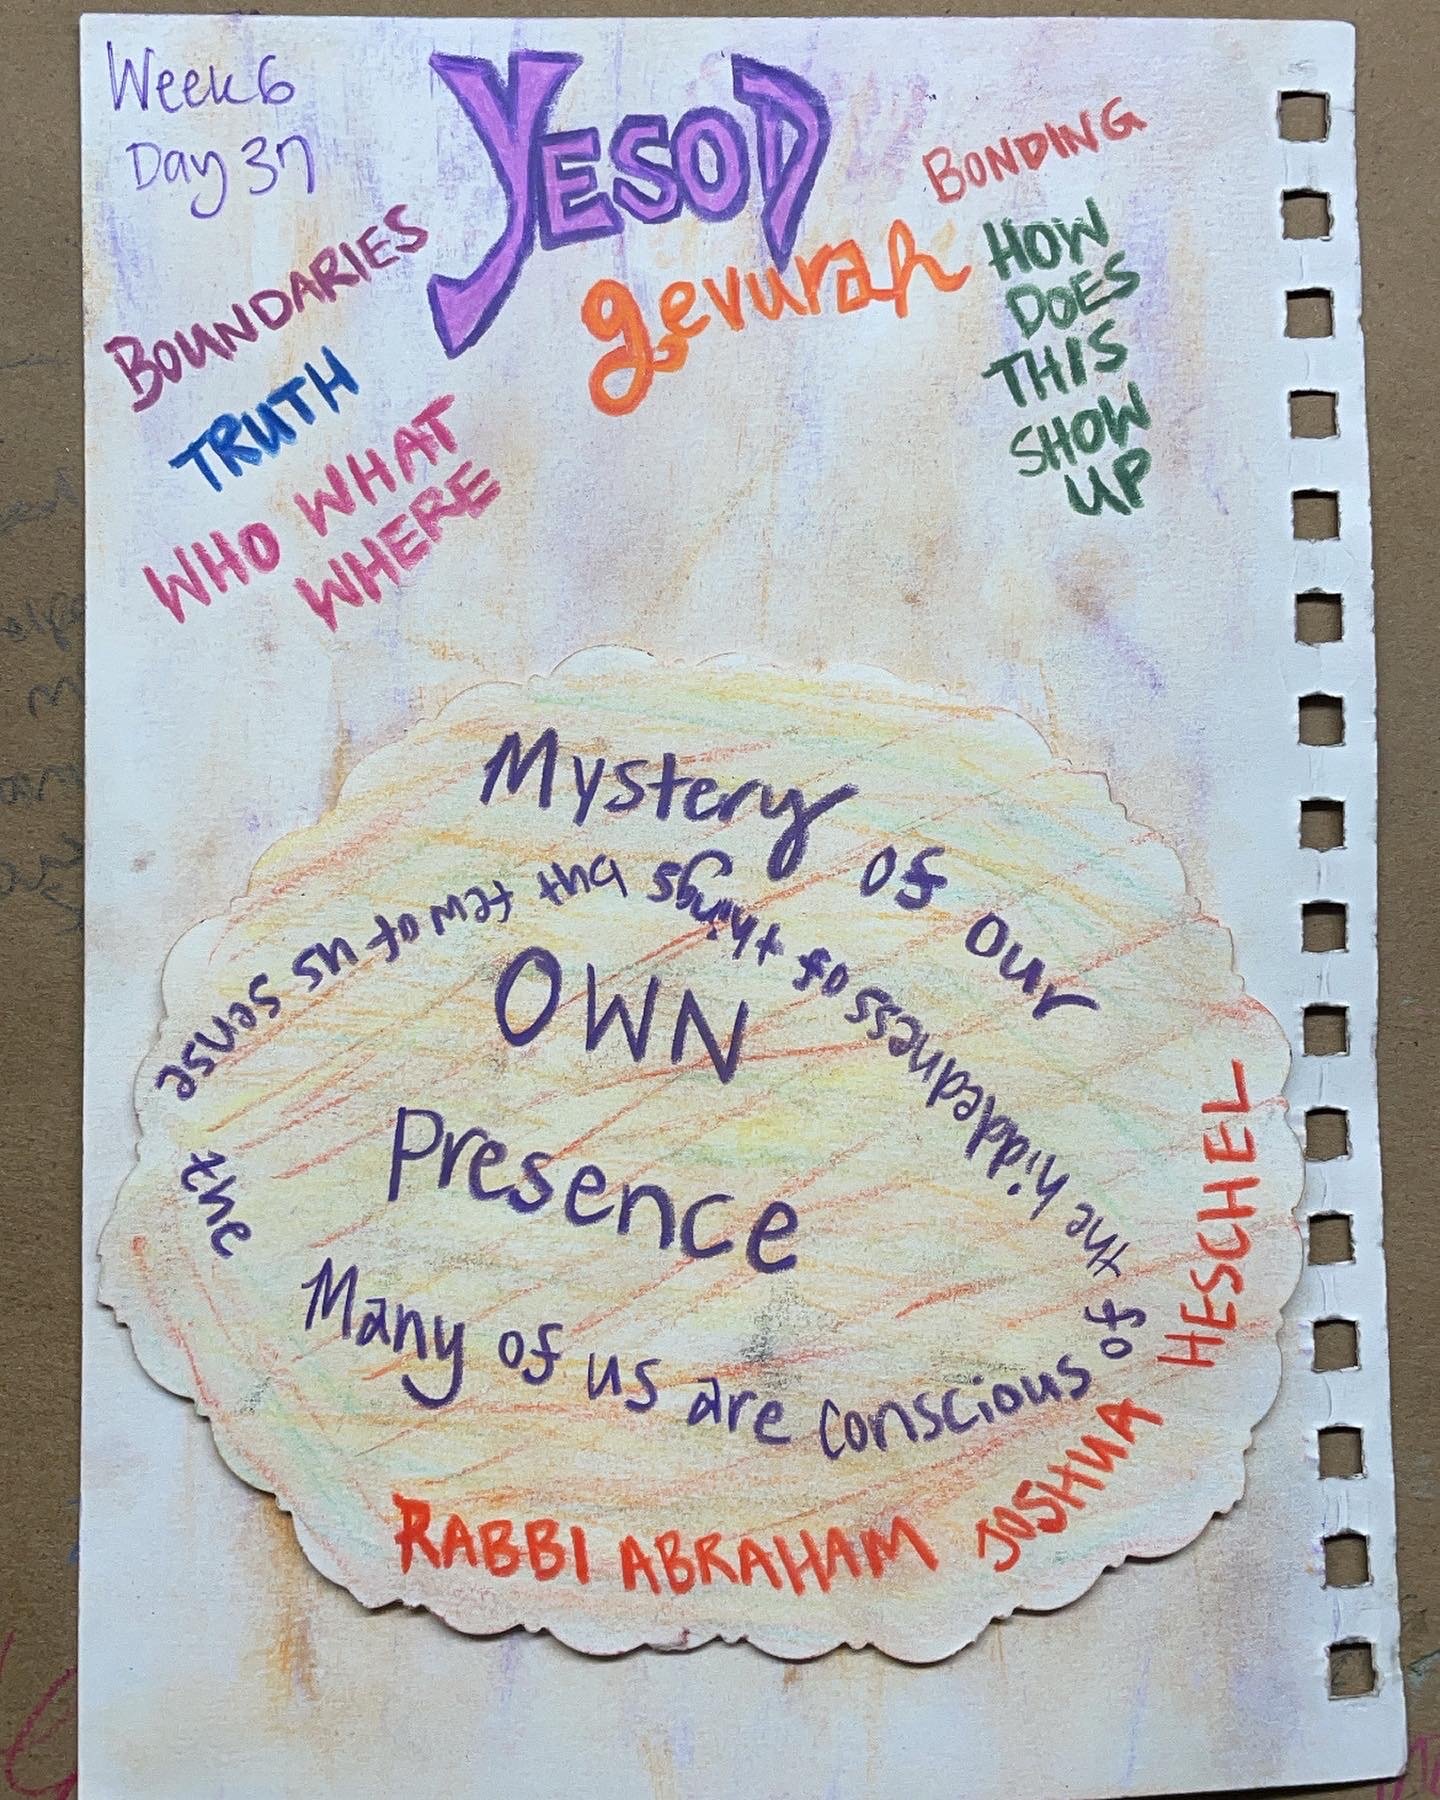 Week 6
Day 37
YESOD
gevurah
BOUNDARIES
TRUTH
WHO WHAT
WHERE
BONDING
HOW
DOES
THIS
SHOW
UP
Many of us are conscious of
the hiddedness of things but few of us sense
the
Mystery of our
OWN
Presence
RABBI ABRAHAM JOSHUA HESCHEL